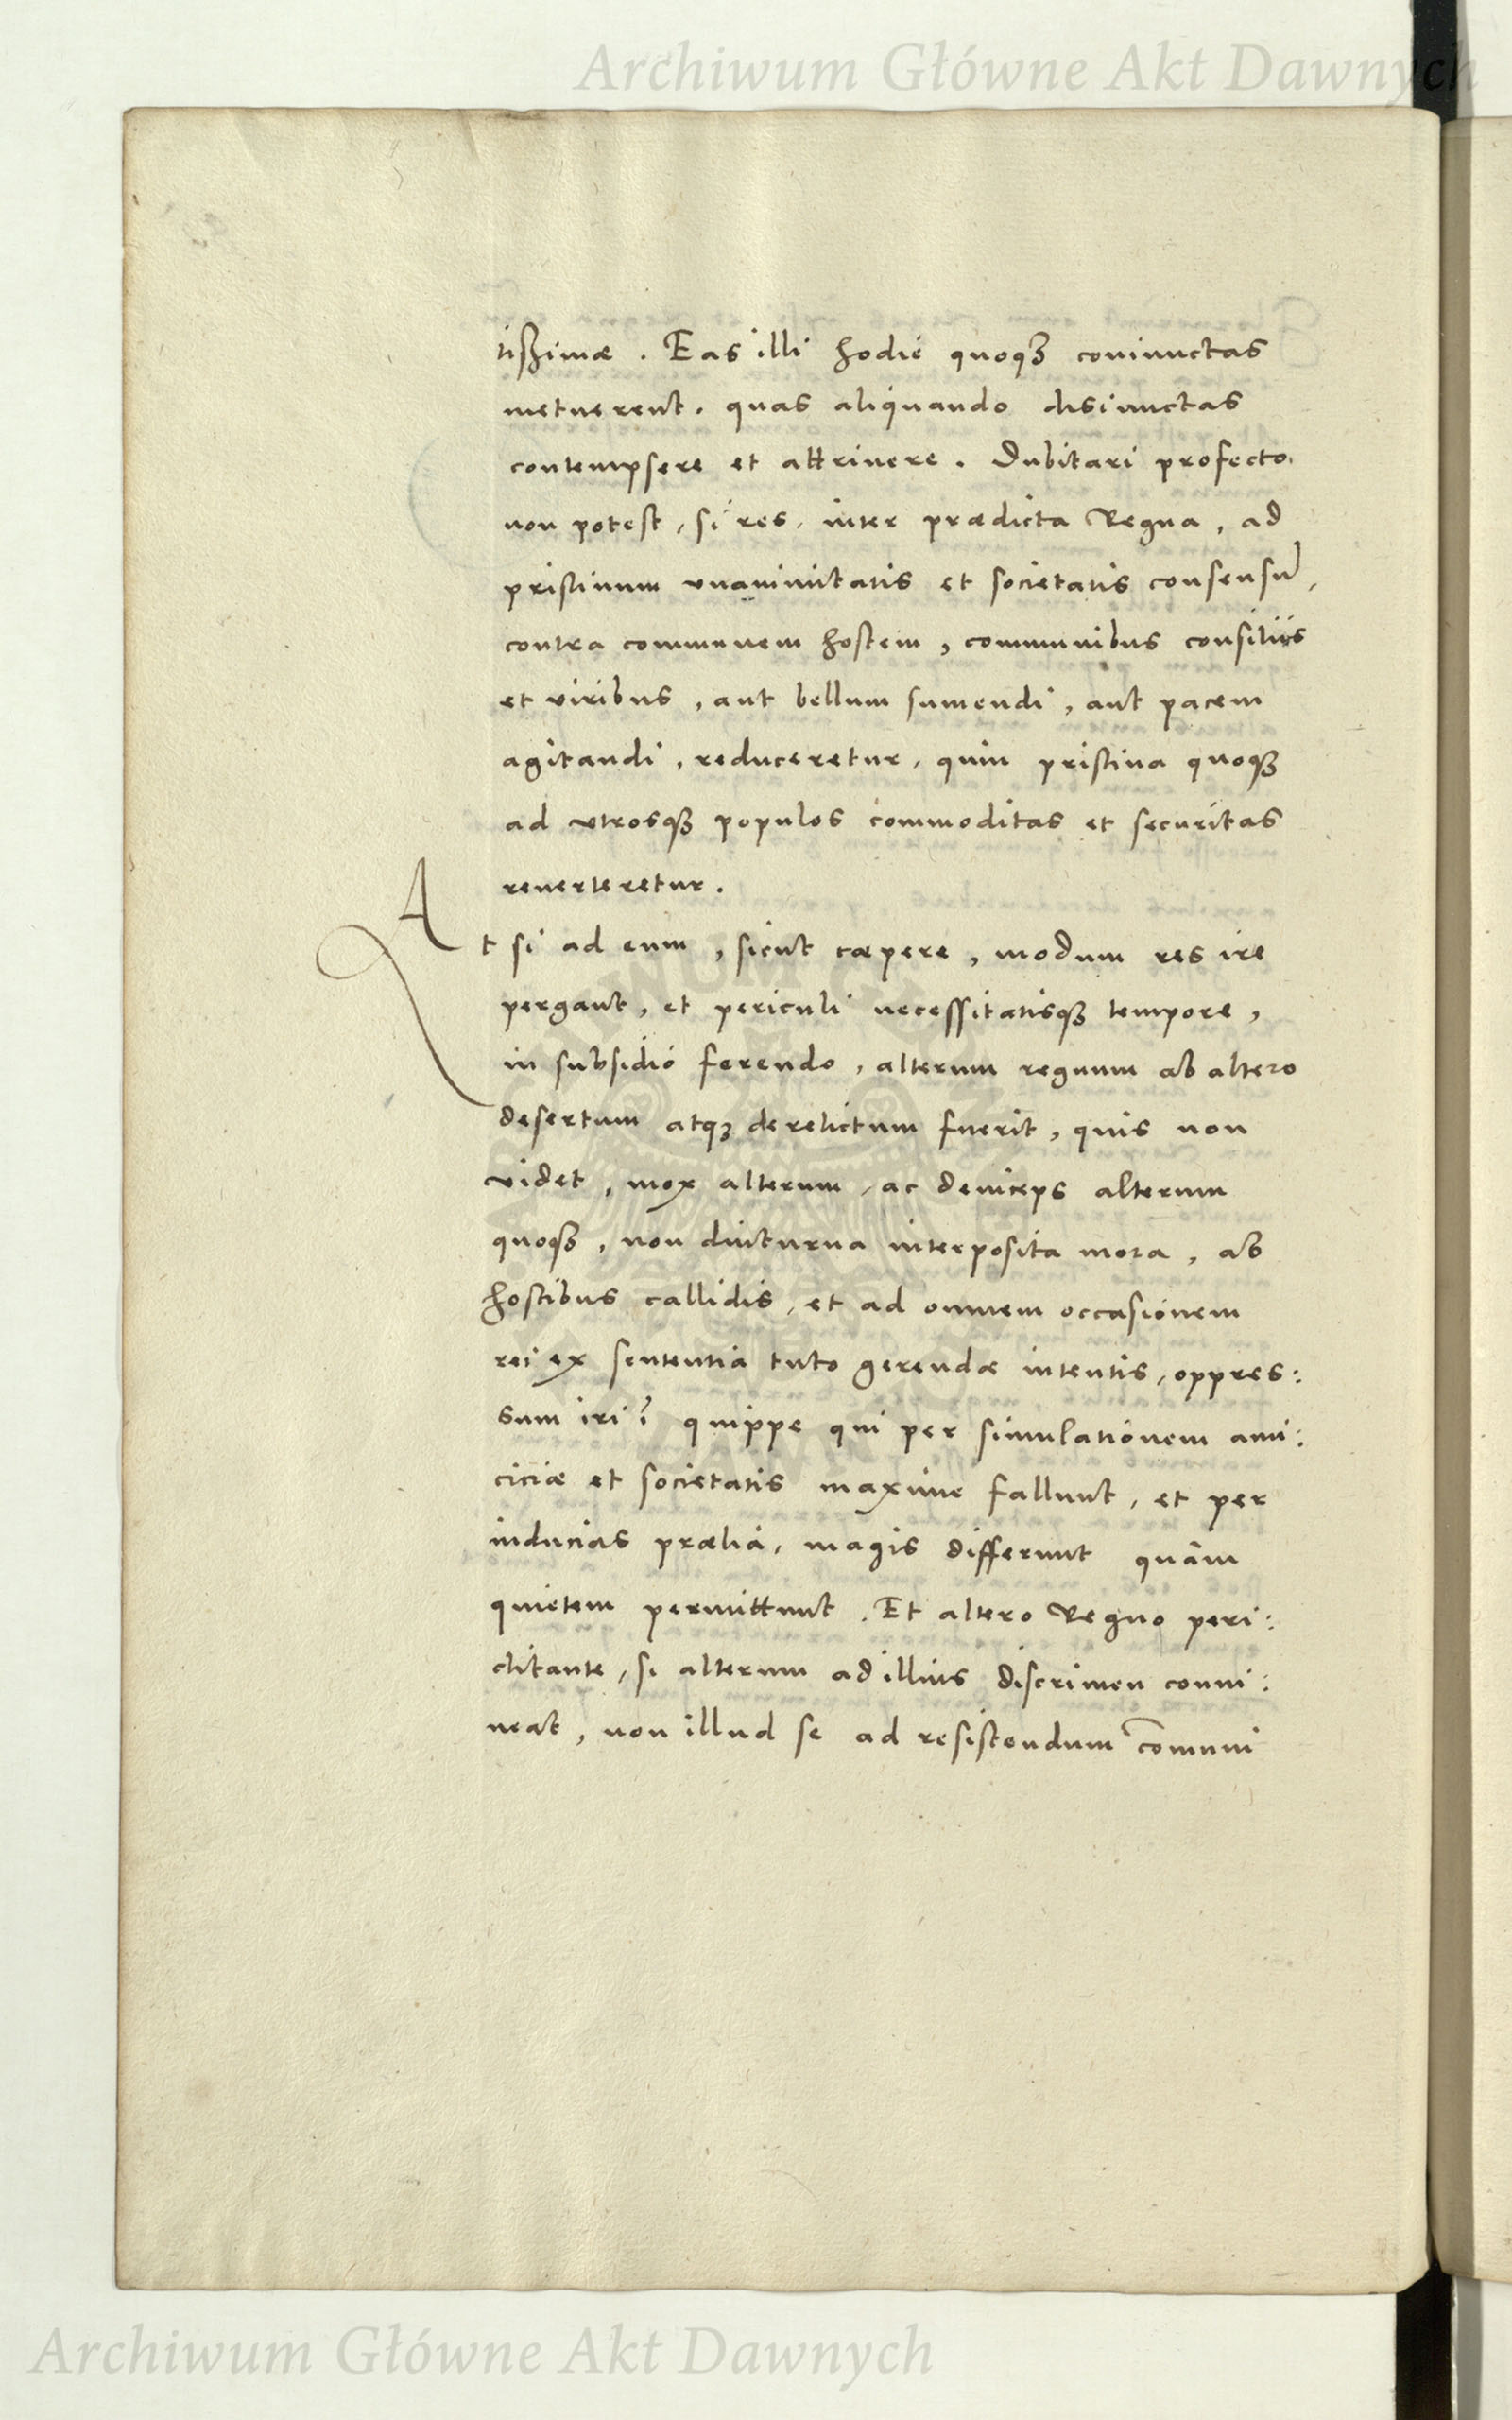 Archiwum Główne Akt Dawnych
tißimæ . Eas illi hodie quoqꝫ coniunctas
metuerent . quas aliquando disiunctas
contempsere et attrivere . Dubitari profecto
non potest, si res, inter prædicta Regna, ad
pristinum unanimitatis et societatis consensū,
contra communem hostem, communibus consiliis
et viribus, aut bellum sumendi, aut pacem
agitandi, reduceretur, quin pristina quoqꝫ
ad vtrosqꝫ populos commoditas et securitas
reuerteretur.
At si ad eum, sicut cœpere, modum res ire
pergant, et periculi necessitatisqꝫ tempore,
in subsidio ferendo, alterum regnum ab altero
desertum atqꝫ derelictum fuerit, quis non
videt, mox alterum, ac deinceps alterum
quoqꝫ, non diuturna interposita mora, ab
hostibus callidis, et ad omnem occasionem
rei ex sententia tuto gerendæ intentis, oppres:
sum iri? quippe qui per simulationem ami:
ciciæ et societatis maxime fallunt, et per
inducias prælia, magis differunt quàm
quietem permittunt . Et altero Regno peri:
clitante, si alterum ad illius discrimen conni:
ueat, non illud se ad resistendum com̄uni
Archiwum Główne Akt Dawnych